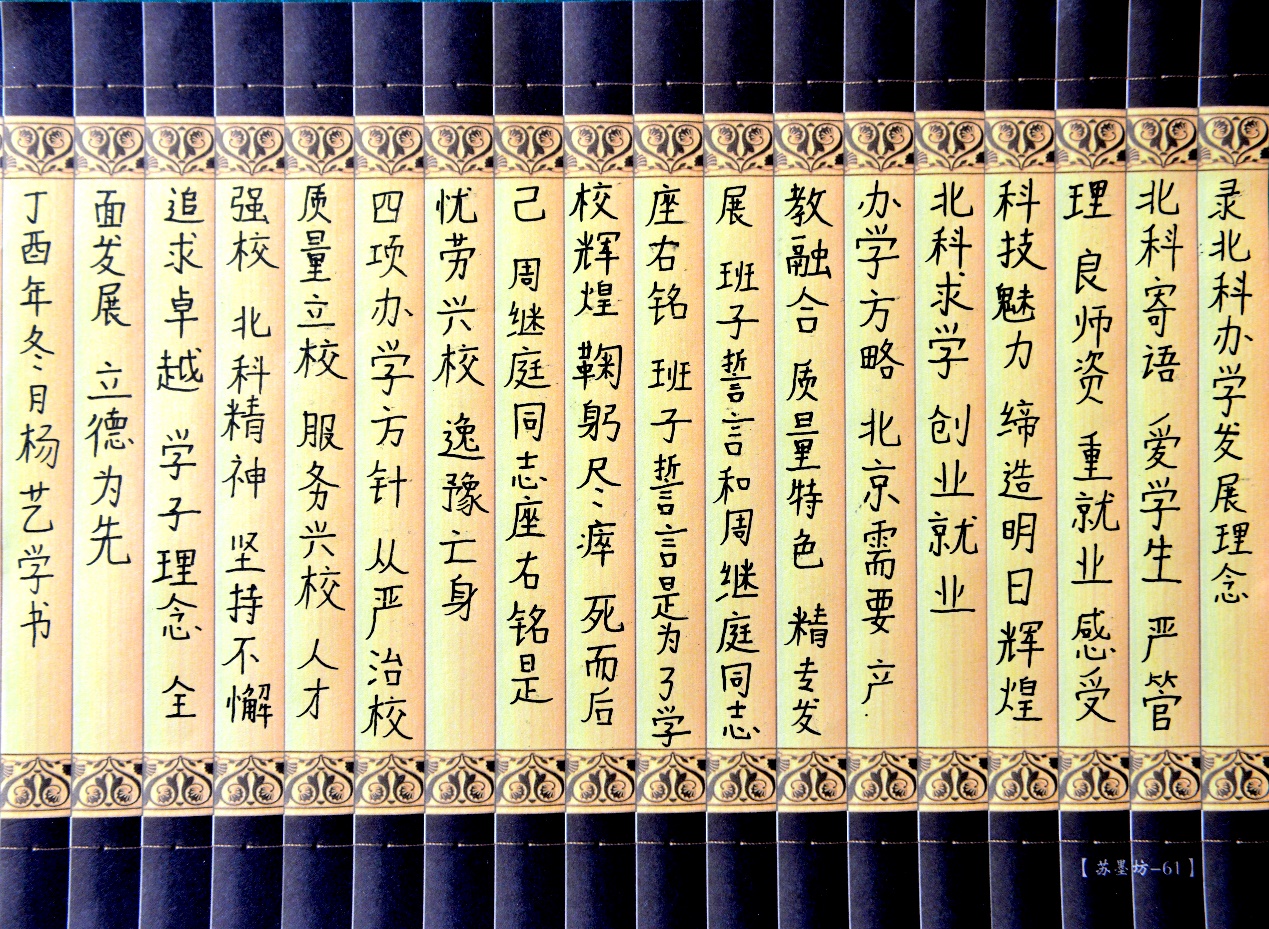 录北科办学发展理念
北科寄语 爱学生 严管
理 良师资 重就业 感受
科技魅力 缔造明日辉煌
北科求学 创业就业
办学方略 北京需要 产
教融合 质量特色 精专发
展 班子誓言和周继庭同志
座右铭 班子誓言是为了学
校辉煌 鞠躬尽瘁 死而后
己 周继庭同志座右铭是
忧劳兴校 逸豫亡身
四项办学方针 从严治校
质量立校 服务兴校 人才
强校 北科精神 坚持不懈
追求卓越 学子理念 全
面发展 立德为先
丁酉年冬月杨艺学书
【苏墨坊-61】